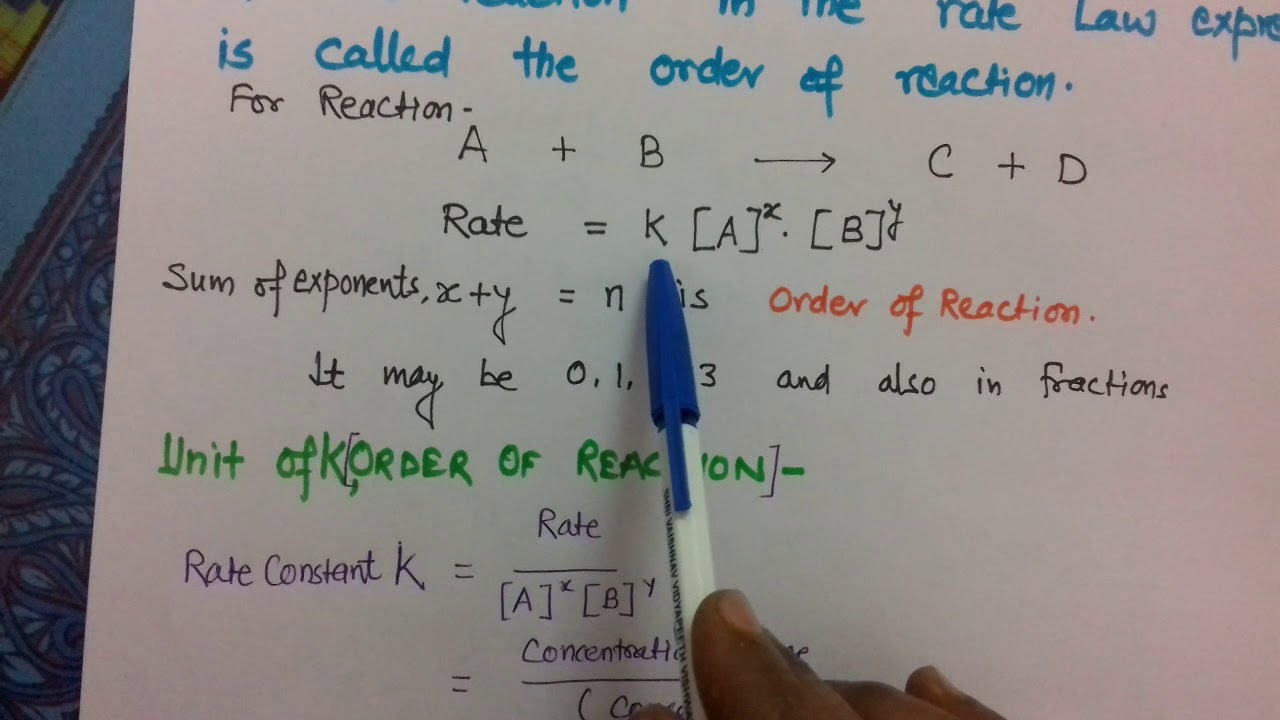 reaction in the rate Law
is called the order of reaction.
For Reaction-
A + B ⟶ C + D
Rate = K [A]ˣ. [B]ʸ
Sum of exponents, x+y = n is Order of Reaction.
It may be 0, 1, 3 and also in fractions
Unit of K, [ORDER OF REAC ION] -
Rate
Rate Constant K =
[A]ˣ [B]ʸ
=
SHRI VAISHNAV VIDYAPEETH